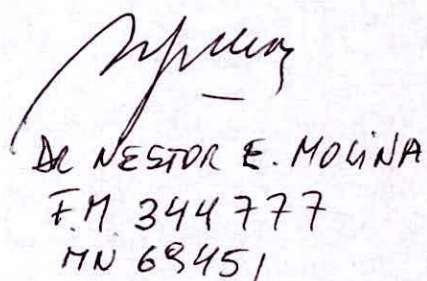 DR NESTOR E. MOLINA
F.M 344777
MN 69451